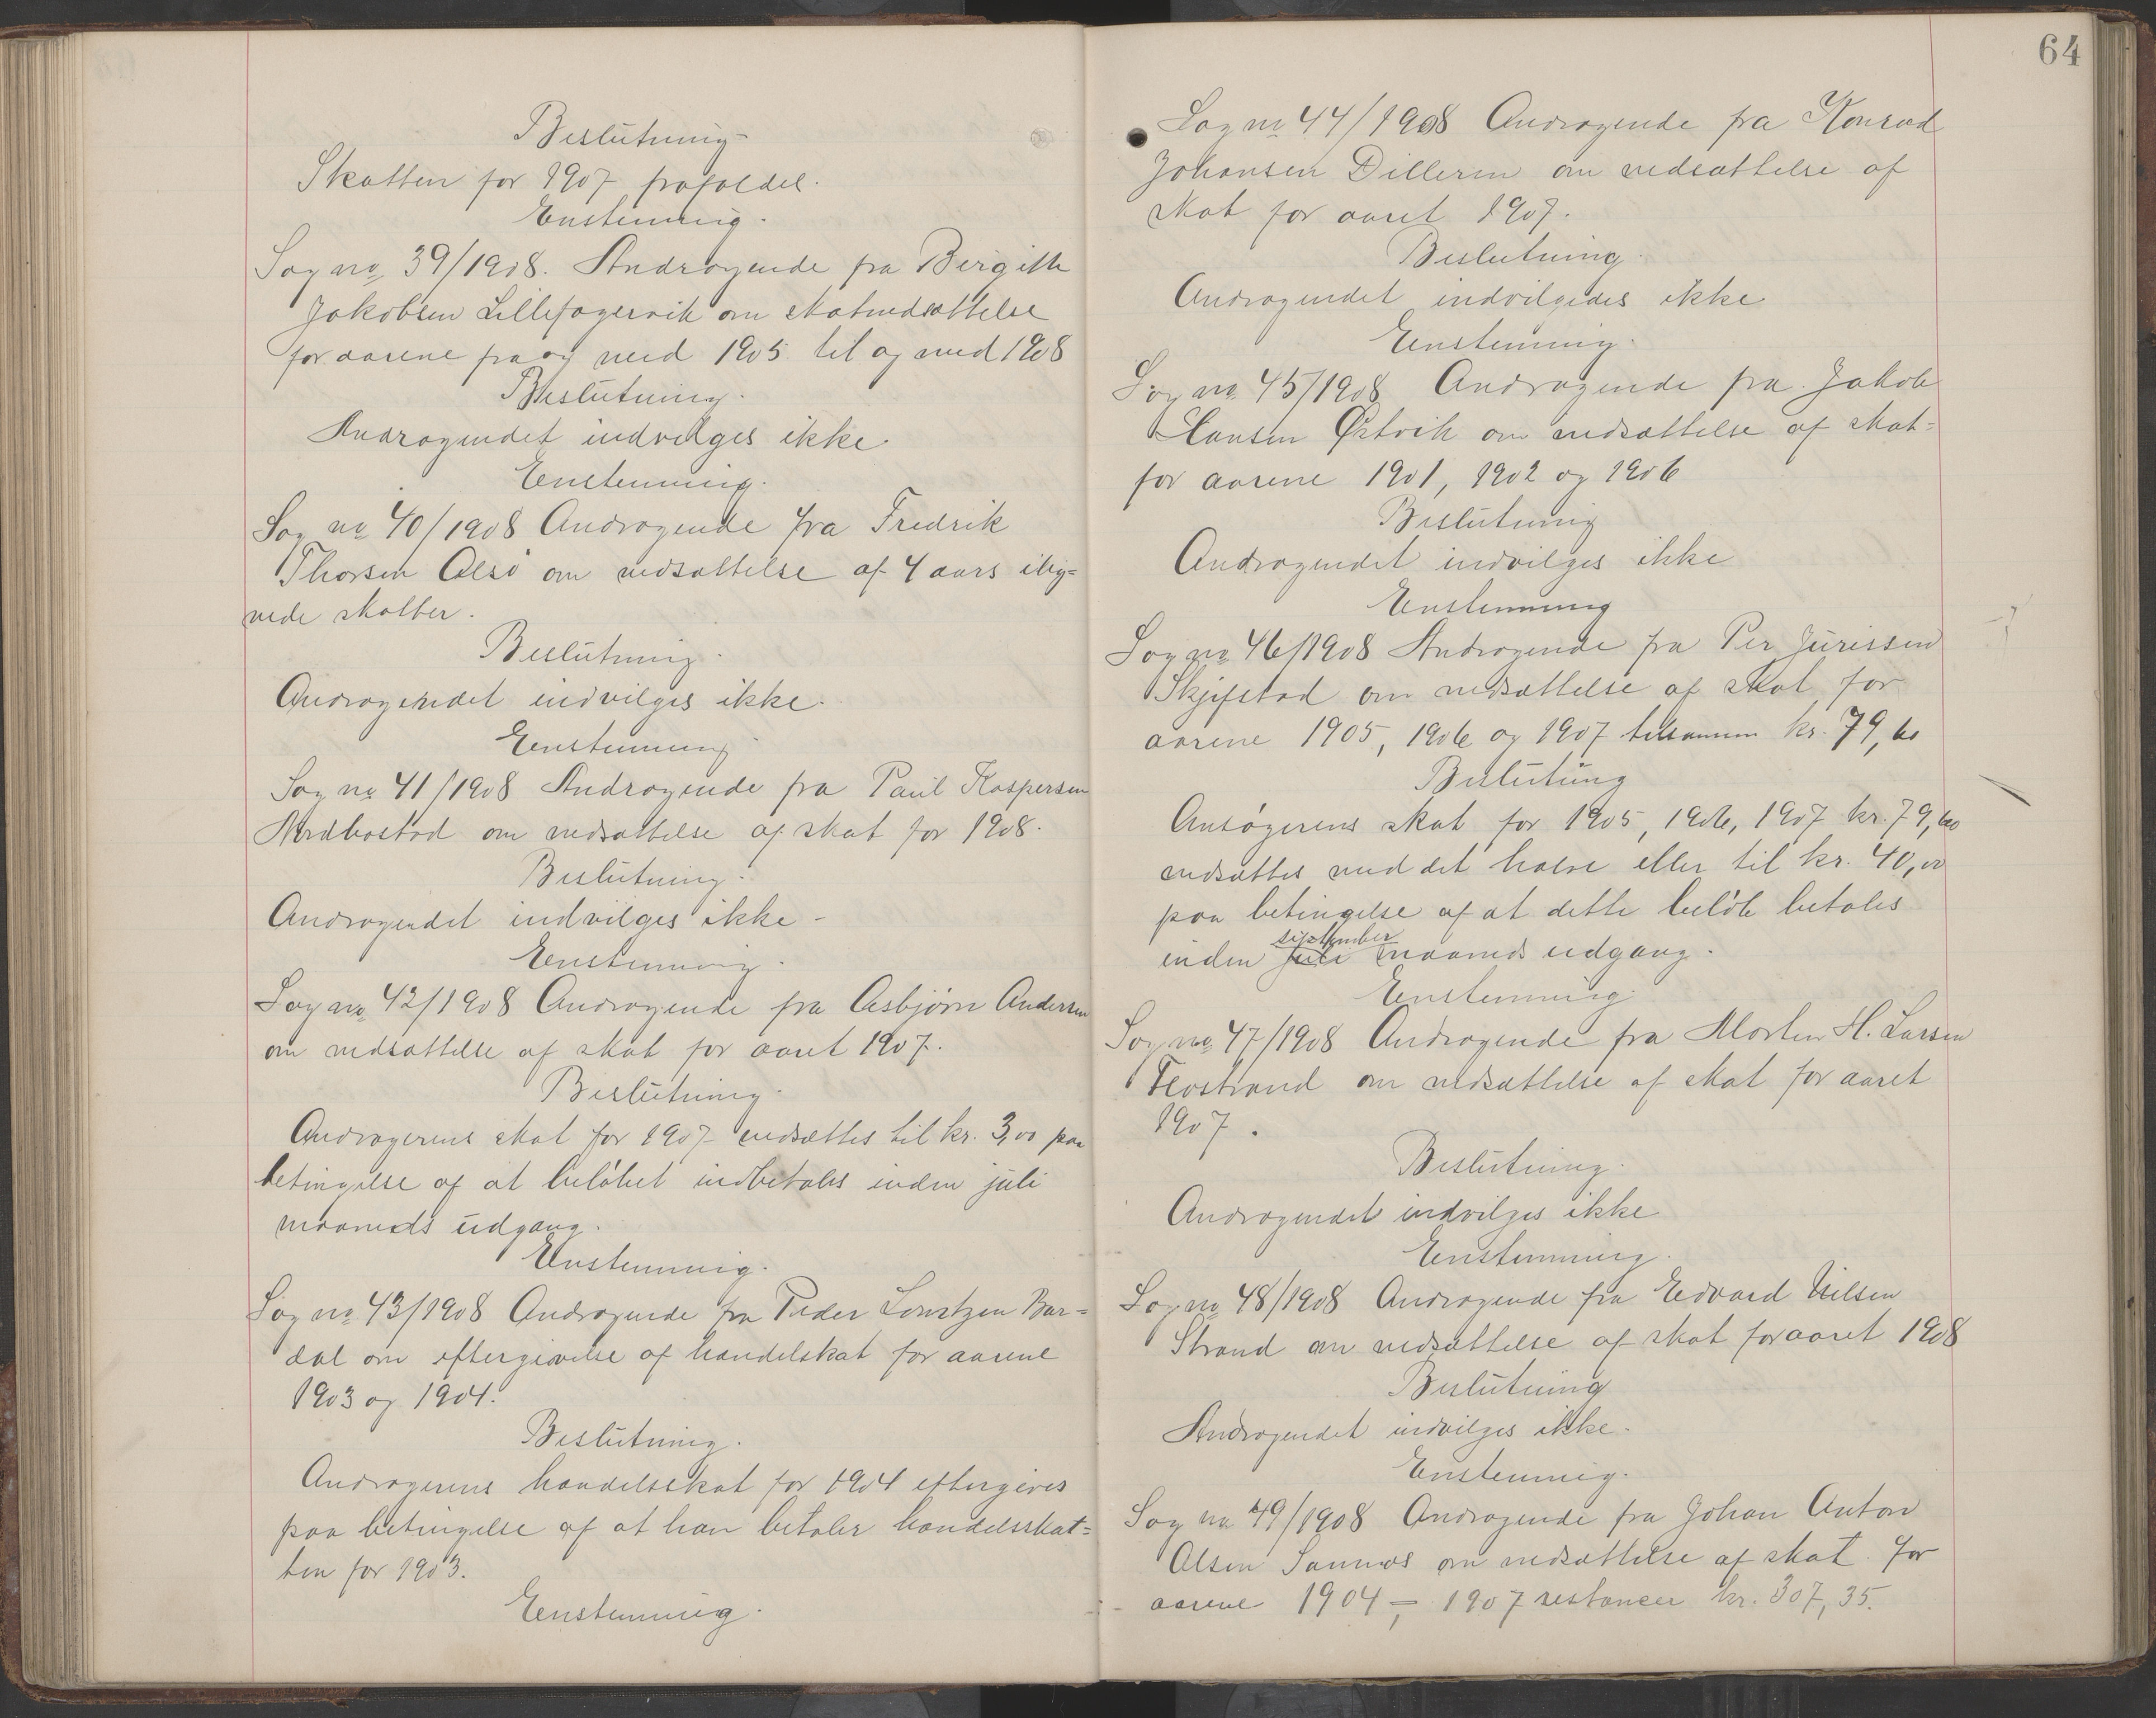 Beslutning
Skatten for 1907 frafaldes.
Enstemmig.
Sag no 39/1908. Andragende fra Birgitte
Jakobsen Lillefagervik om skatnedsættelse
for aarene fra og med 1905 til og med 1908
Beslutning.
Andragendet indvilges ikke.
Enstemmig.
Sag no 40/1908 Andragende fra Fredrik
Thorsen Alsö om nedsættelse af 4 aars ilig=
nede skatter.
Beslutning.
Andragendet indvilges ikke.
Enstemmig
Sag no 41/1908 Andragende fra Paul Kaspersen
Nordbostad om nedsættelse af skat for 1908.
Beslutning.
Andragendet indvilges ikke -
Enstemmig.
Sag no 42/1908 Andragende fra Asbjørn Andersen
om nedsættelse af skat for aaret 1907.
Beslutning.
Andragerens skat for 1907 nedsættes til kr. 3,00 paa
betingelse af at belöbet indbetales inden juli
maaneds udgang.
Enstemmig.
Sag no 43/1908 Andragende fra Peder Lorntzen Bar=
dal om eftergivelse af handelskat for aarene
1903 og 1904.
Beslutning.
Andragerens handelsskat for 1904 eftergives
paa betingelse af at han betaler handelsskat=
ten for 1903.
Enstemmig.
64
Sag no 44/1908 Andragende fra Konrad
Johansen Dilleren om nedsættelse af
skat for aaret 1907.
Beslutning.
Andragendet indvilgedes ikke
Enstemmig.
Sag no 45/1908 Andragende fra Jakob
Hansen Østvik om nedsættelse af skat=
for aarene 1901, 1902 og 1906
Beslutning
Andragendet indvilges ikke
Enstemmig
Sag no 46/1908 Andragende fra Per Jürissen
Skjefstad om nedsættelse af skat for
aarene 1905, 1906 og 1907 tilsammen kr. 79,60
Beslutning
Ansögerens skat for 1905, 1906, 1907 kr. 79,60
nedsættes med det halve eller til kr. 40,00
paa betingelse af at dette belöb betales
september
inden juli maaneds udgang.
Enstemmig.
Sag no 47/1908 Andragende fra Morten H. Larsen
Flostrand om nedsættelse af skat for aaret
1907.
Beslutning.
Andragendet indvilges ikke
Enstemmig.
Sag no 48/1908 Andragende fra Edvard Nilsen
Strand om nedsættelse af skat for aaret 1908
Beslutning
Andragendet indvilges ikke.
Enstemmig.
Sag no 49/1908 Andragende fra Johan Anton
Olsen om nedsættelse af skat for
aarene 1904 - 1907 restancer kr. 307,35.